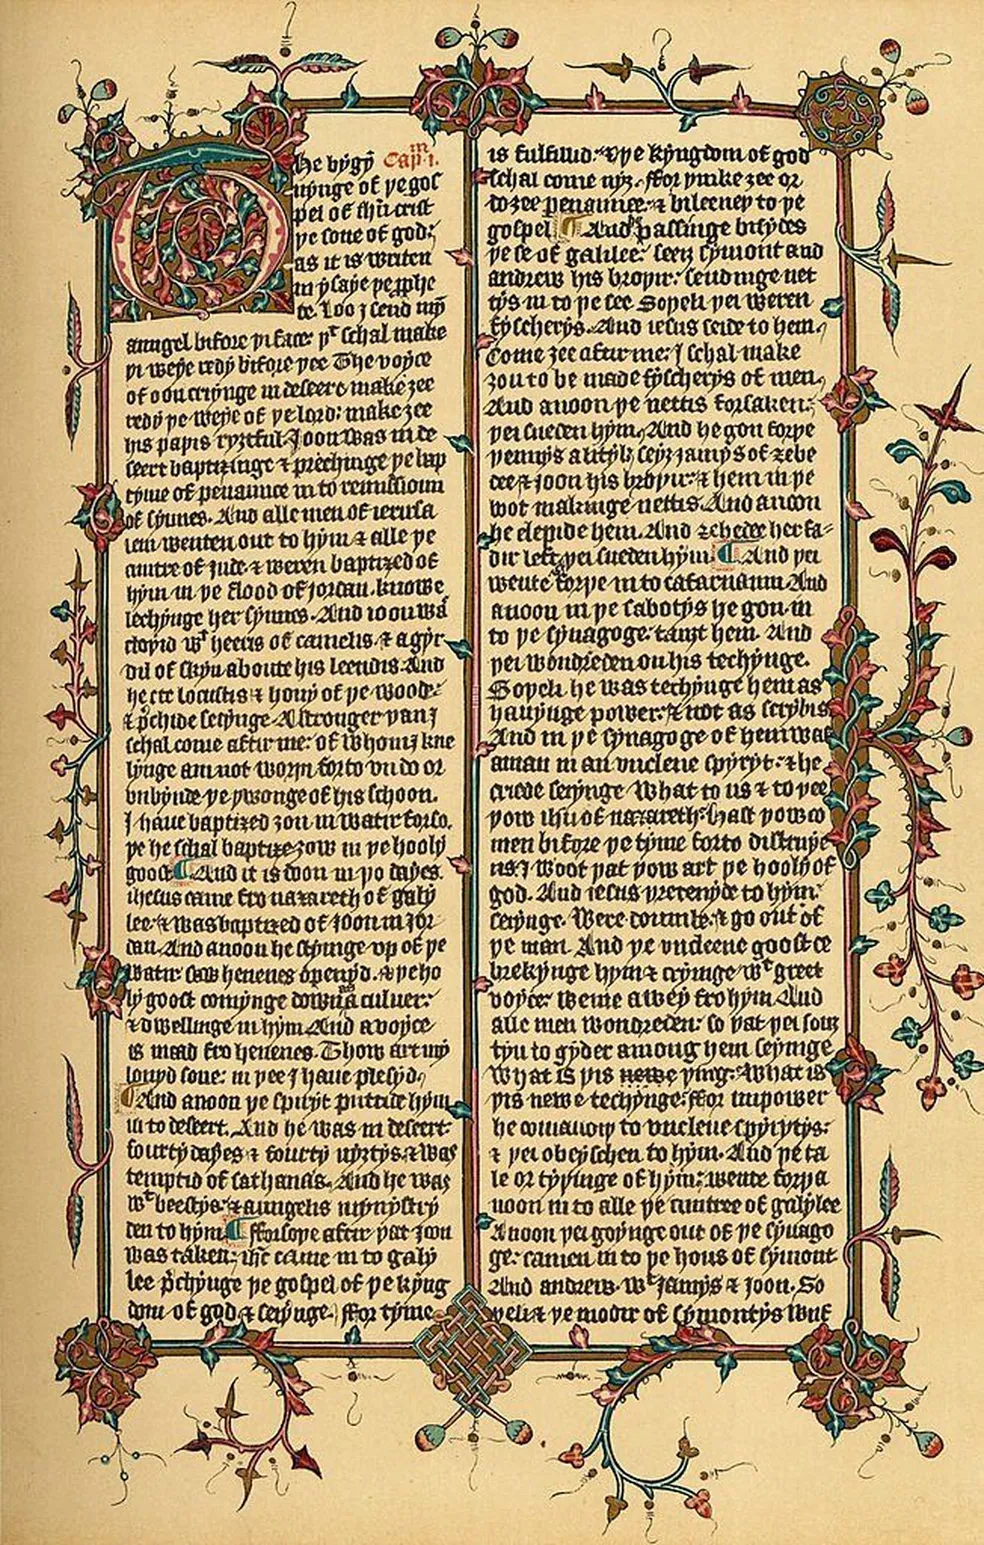 he bygẏ Cap̅ .1.
nynge of yegos
pel of ihū crist
ye sone of god:
as it is writen
in ysaye ye p̱phe
te. Loo j send myn̄
aungel bifore yi face: yͭ schal make
yi weye redy bifore yee The voyce
of oon criynge in deseert make zee
redy ye weye of ye lord: make zee
his papis ryztful. Joon was in de
seert baptizinge ⁊ prechinge ye bap
tyme of penaunce in to remissioun
of synnes. And alle men of ierusa
lem wenten out to hym ⁊ alle ye
cuntre of Jude ⁊ weren baptized of
hym in ye flood of jordan. knowe
lechynge her synnes. And ioon was
cloyid wͭ heeris of camelis ⁊ a gyr
dil of skyn aboute his leendis. And
he ete locustis ⁊ hony of ye woode:
⁊ p̄chide seiynge. A stronger yan j
schal come aftir me: of whom j kne
lynge am not worþi forto vndo or
vnbynde ye ywonge of his schoon.
J haue baptized zou in watir forso.
ye he schal baptize zow in ye hooly
goost ¶ And it is doon in yo dayes.
ihesus came fro nazareth of galy
lee: ⁊ was baptized of Joon in Jor
dan. And anoon he stiynge vp of ye
watir: saw heuenes openyd. ⁊ ye ho
ly goost comynge doun as a culuer:
⁊ dwellinge in hym And a voyce
is maad fro heuenes. Thow art my
louyd sone: in yee j haue plesyd.
¶ And anoon ye spiryt puttide hym
in to desert. And he was in desert
fourty dayes ⁊ fourty nyztys. ⁊ was
temptid of sathanas. And he was
wͭ beestys. ⁊ aungelis mynystri
den to hym ¶ fforsoye aftir yat Joon
was taken: ihc came in to galy
lee p̄chynge ye gospel of ye kyng
dom of god. ⁊ seiynge. ffor tyme
is fulfillid. ⁊ ye kyngdom of god
schal come nyz. ffor yinke zee or
do zee penaunce: ⁊ bileeuey to ye
gospel ¶ And passinge bisydes
ye se of galilee: seez symont and
andrew his broyir: sendinge net
tys in to ye see Soyeli yei weren
fyscherys. And iesus seide to hem.
Come zee aftir me: J schal make
zou to be made fyscherys of men.
And anoon ye nettis forsaken:
yei sueden hym. And he gon forye
yennys a lityl: seyz jamys of zebe
dee ⁊ joon his broyir: ⁊ hem in ye
boot makinge nettis. And anoon
he clepide hem. And zebedee her fa-
dir left yei sueden hym ¶ And yei
wente forye in to cafarnaum And
anoon in ye sabotys he gon in
to ye synagoge: tauzt hem. And
yei wondreden on his techynge.
Soyeli he was techynge hem as
hauynge power: ⁊ not as scrybis
And in ye synagoge of hem was
a man in an vnclene spyryt: ⁊ he
criede seiynge What to us ⁊ to yee
yow ihū of nazareth: hast yow co
men bifore ye tyme forto distruye
us: J woot yat yow art ye hooly of
god. And iesus yretenyde to hym:
seiynge. Were doumb. ⁊ go out of
ye man. And ye vnclene goost ce
brekynge hym ⁊ criynge wͭ greet
voyce: wente awey fro hym And
alle men wondreden: so yat yei souz
tyn to gyder among hem seyinge
What is yis newe ying: What is
yis newe techynge: ffor in power
he comaundiy to vnclene spyrytys:
⁊ yei obeyschen to hym. And ye ta
le or tyyinge of hym: wente forya
noon in to alle ye cuntree of galylee
Anoon yei goynge out of ye synago
ge: camen in to ye hous of symont
And andrew. wͭ Jamys ⁊ joon. So
yeli ⁊ ye modir of symontys wyf